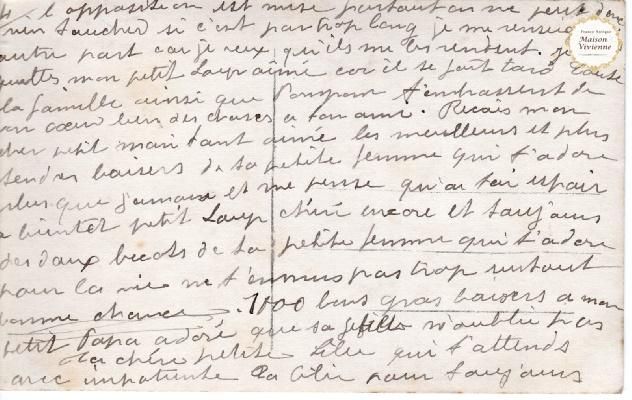 4 l'opposition est mise partout on ne peut donc
rien toucher si c'est par trop long je me
autre part car je veux qu'ils me les rendent. Je
quittes mon petit Loup aimé car il se fait tard
la famille ainsi que t'embrassent de
bon cœur bien des choses a ton ami. Recois mon
cher petit mari tant aimé les meilleurs et plus
tendres baisers de ta petite femme qui t'adore
plus que jamais et ne pense qu'a toi espoir
a bientot petit Loup chéri encore et toujours
des doux becots de ta petite femme qui t'adore
pour la vie ne t'ennuis pas trop surtout
bonne chance. 1000 bons gros baisers a mon
petit Papa adoré que sa fille n'oublie pas
Ta chère petite Lilie qui t'attends
avec impatience ta pour toujours
France Antique
Maison
Vivienne